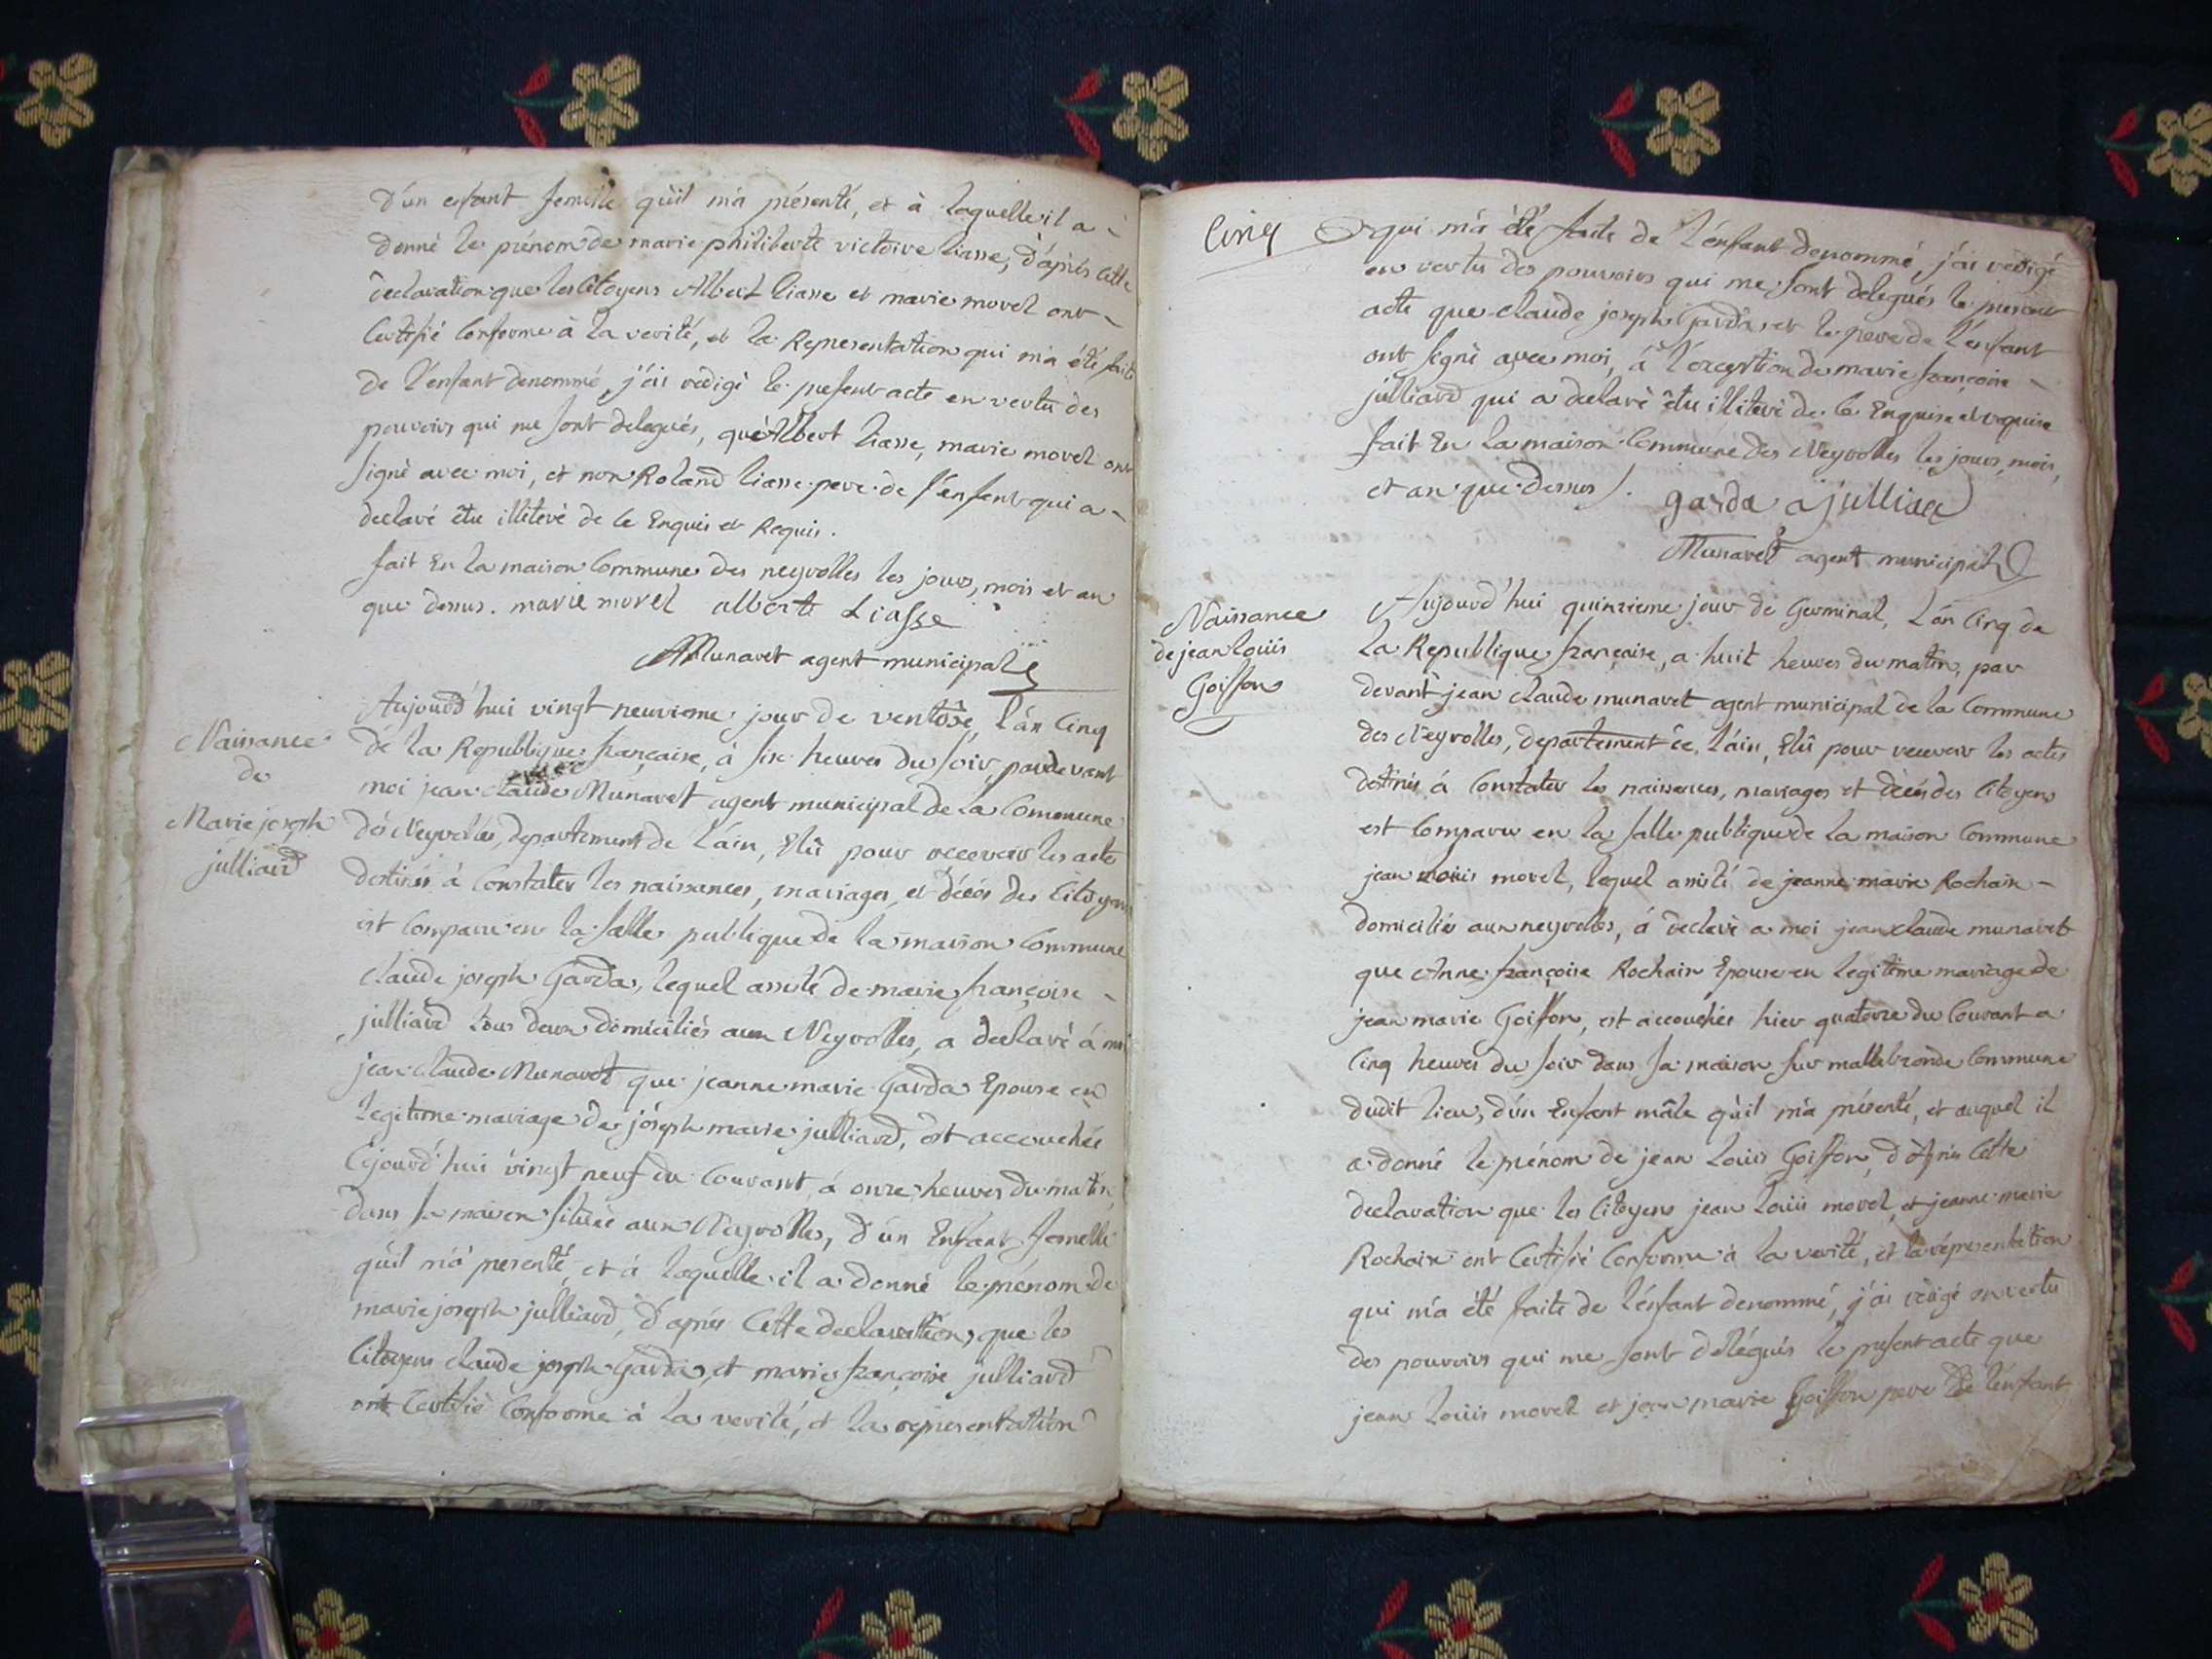 d'un enfant femelle qu'il m'a présenté, et à laquelle il a -
donné le prénom de marie philiberte victoire liasse, d'après cette
declaration que les Citoyens Albert liasse et marie morel ont -
Certifié Conforme à la verité, et la Representation qui m'a été faite
de l'enfant denommé, j'ai redigé le present acte en vertu des
pouvoirs qui me sont delegués, qu'Albert liasse, marie morel ont
signé avec moi, et non Roland liasse pere de l'enfant qui a -
declaré être illiteré de ce Enquis et Requis.
fait En la maison Commune des neyrolles les jours, mois et an
que dessus. marie morel albert Liasse
Munaret agent municipal
Naissance
de
Marie joseph
julliard
Aujourd'hui vingt neuvieme jour de ventôse, l'an Cinq
de la Republique française, à six heures du soir, pardevant
moi jean claude Munaret agent municipal de la Commune
des Neyrolles, departement de l'ain, Elû pour recevoir les actes
destinés à Constater les naissances, mariages, et décés des Citoyens
est Comparu en la salle publique de la maison Commune
claude joseph Garda, lequel assisté de marie françoise -
julliard tous deux domiciliés aux Neyrolles, a declaré à moi
jean claude Munaret que jeanne marie Garda Epouse en
legitime mariage de joseph marie julliard, est accouchée
Cejourd'hui vingt neuf du Courant, à onze heures du matin,
dans sa maison située aux Neyrolles, d'un Enfant femelle
qu'il m'a presenté, et à laquelle il a donné le prénom de
marie joseph julliard, d'après Cette declaration, que les
Citoyens claude joseph Garda, et marie françoise julliard
ont Certifié Conforme à la verité, et la representation
Cinq
qui m'a été faite de l'enfant denommé, j'ai redigé
en vertu des pouvoirs qui me sont delegués le present
acte que claude joseph Garda, et le pere de l'enfant
ont signé avec moi, à l'exception de marie françoise -
julliard qui a declaré être illiteré de ce Enquise et requise
fait En la maison Commune des Neyrolles les jours, mois,
et an que dessus. garda julliard
Munaret agent municipal
Naissance
de jean louis
Goiffon
Aujourd'hui quinzieme jour de Germinal, L'an Cinq de
la Republique française, a huit heures du matin, par
devant jean claude munaret agent municipal de la Commune
des Neyrolles, departement de l'ain, Elû pour recevoir les actes
destinés à Constater les naissances, mariages et décés des Citoyens
est Comparu en la salle publique de la maison Commune
jean louis morel, lequel assisté de jeanne marie Rochaix -
domiciliés aux neyrolles, à declaré a moi jean claude munaret
que Anne françoise Rochaix Epouse en legitime mariage de
jean marie Goiffon, est accouchée hier quatorze du Courant a
Cinq heures du soir dans sa maison sur mallebronde Commune
dudit lieu, d'un Enfant mâle qu'il m'a présenté, et auquel il
a donné le prénom de jean Louis Goiffon, d'après Cette
declaration que les Citoyens jean Louis morel, et jeanne marie
Rochaix ont Certifié Conforme à la verité, et la réprésentation
qui m'a été faite de l'enfant denommé, j'ai redigé en vertu
des pouvoirs qui me sont délégués le présent acte que
jean Louis morel et jean marie Goiffon pere de l'enfant